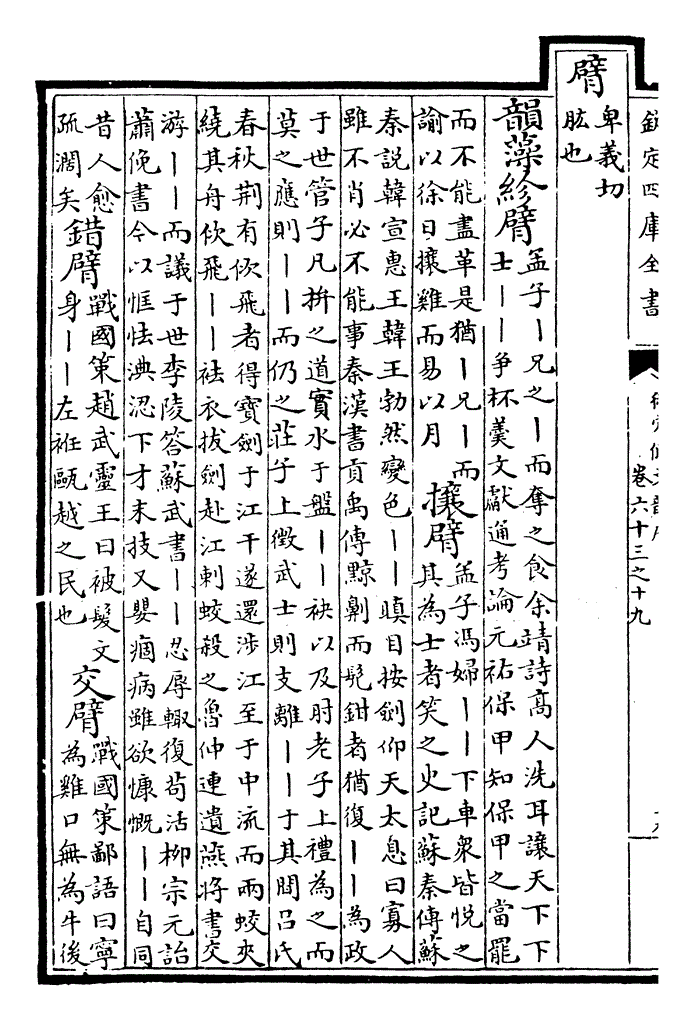 欽定四庫全書
卷六十三之十九
臂
卑義切
肱也
韻藻紾臂
孟子丨兄之丨而奪之食余靖詩髙人洗耳讓天下下
士丨丨爭杯羮文獻通考論元祐保甲知保甲之當罷
而不能盡革是猶丨兄丨而
諭以徐日攘雞而易以月
攘臂
孟子馮婦丨丨下車衆皆悦之
其為士者笑之史記蘇秦傳蘇
秦說韓宣惠王韓王勃然變色丨丨瞋目按劍仰天太息曰寡人
雖不肖必不能事秦漢書貢禹傳黥劓而髡鉗者猶復丨丨為政
于世管子凡拚之道實水于盤丨丨袂以及肘老子上禮為之而
莫之應則丨丨而仍之莊子上徵武士則支離丨丨于其間吕氏
春秋荆有佽飛者得寶劍于江干遂還涉江至于中流而兩蛟夾
繞其舟佽飛丨丨袪衣拔劍赴江刺蛟殺之魯仲連遺燕將書交
游丨丨而議于世李陵答蘇武書丨丨忍辱輙復苟活柳宗元詒
蕭俛書今以恇怯淟涊下才末技又嬰痼病雖欲慷慨丨丨自同
昔人愈
疏濶矣
錯臂
戰國策趙武靈王曰被髮文
身丨丨左袵甌越之民也
交臂
戰國策鄙語曰寧
為雞口無為牛後